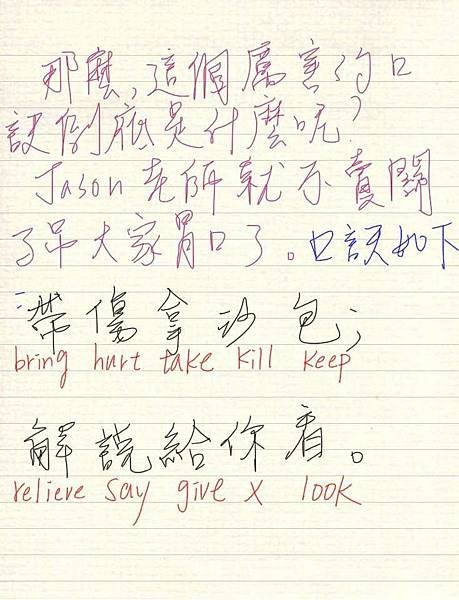 那麼,這個厲害的口
訣倒底是什麼呢?
Jason老師就不賣關
子吊大家胃口了。口訣如下
:帶傷拿沙包;
bring hurt take kill keep
解說給你看。
relieve say give x look